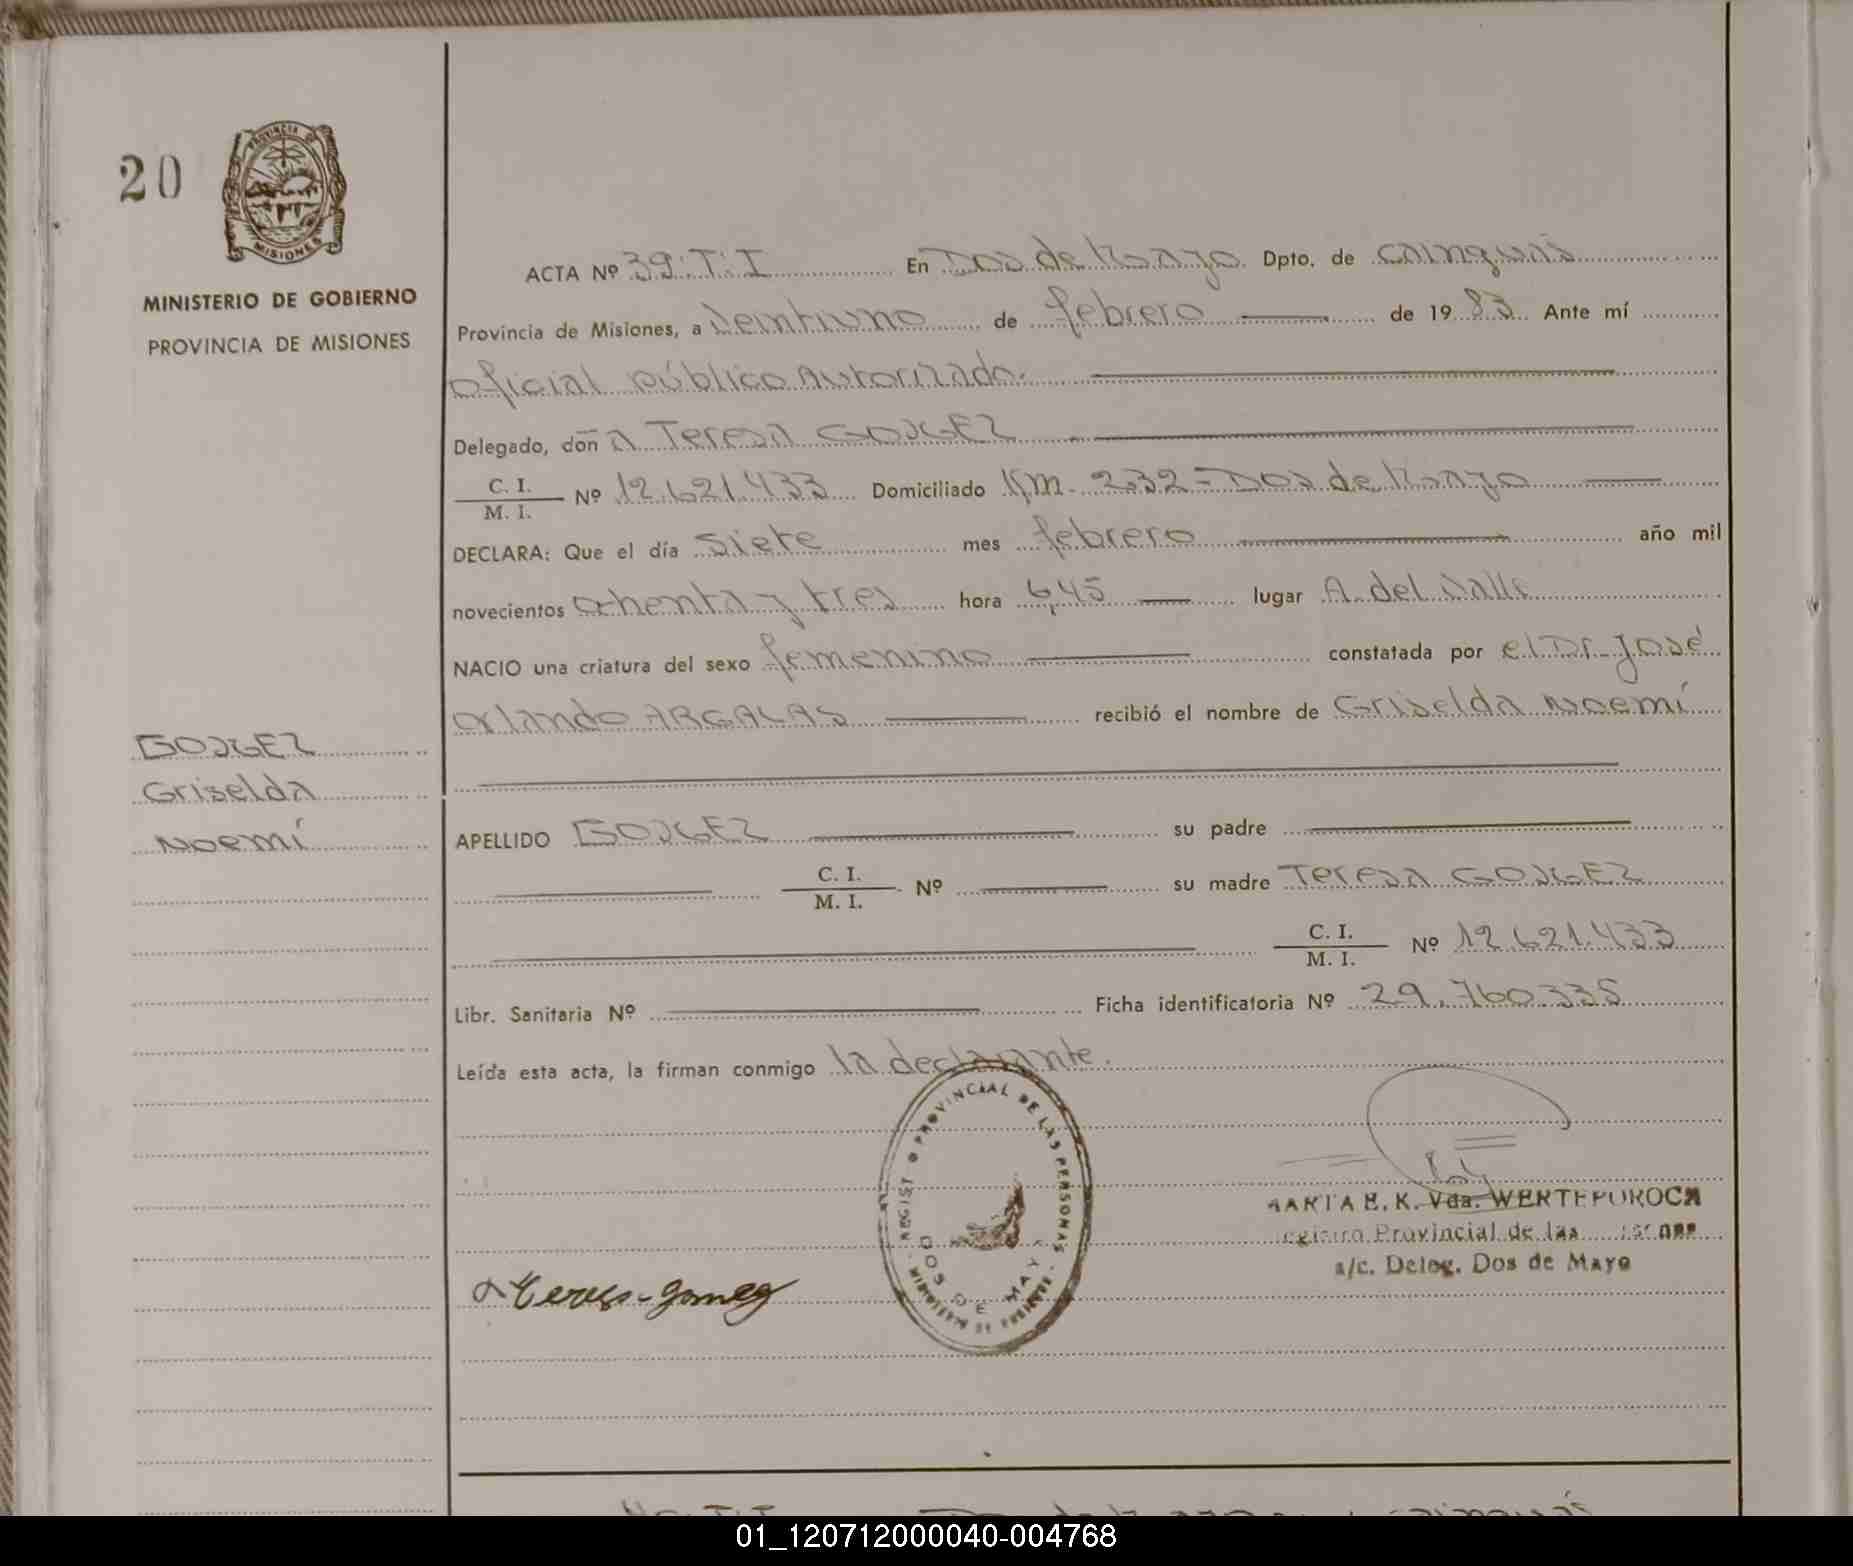 20
PROVINCIA DE
MISIONES
MINISTERIO DE GOBIERNO
PROVINCIA DE MISIONES
ACTA Nº 39: T: I En Dos de Mayo Dpto. de Cainguás
Provincia de Misiones, a Veintiuno de febrero de 1983 Ante mí
oficial público Autorizado.
Delegado, doña Teresa GOMEZ
C. I.
M. I. Nº 12.621.433 Domiciliado Km. 232 - Dos de Mayo
DECLARA: Que el día Siete mes febrero año mil
novecientos ochenta y tres hora 6,45 lugar A. del Valle
NACIO una criatura del sexo femenino constatada por el Dr. José
Orlando ARGALAS recibió el nombre de Griselda Noemí
GOMEZ
Griselda
Noemí
APELLIDO GOMEZ su padre
C. I.
M. I. Nº su madre Teresa GOMEZ
C. I.
M. I. Nº 12.621.433
Libr. Sanitaria Nº Ficha identificatoria Nº 29.760.335
Leída esta acta, la firman conmigo la declarante.
PROVINCIAL DE LAS PERSONAS
DOS DE MAYO
Vda. WERTEPOROCH
Provincial de las
a/c. Deleg. Dos de Mayo
Teresa Gomez
01_120712000040-004768